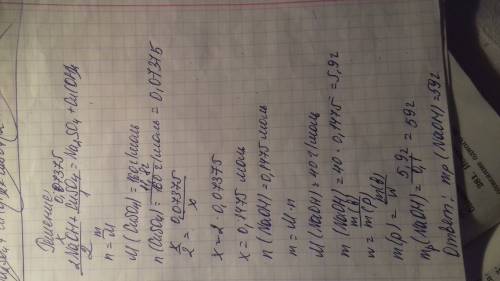 Решение:
x 0,07375
2NaOH + CuSO₄ = Na₂SO₄ + Cu(OH)₂
2
n = m/M
M(CuSO₄) = 160 г/моль
n(CuSO₄) = 11,8г/160 г/моль = 0,07375
x/2 = 0,07375
x = 2 · 0,07375
x = 0,1475 моль
n(NaOH) = 0,1475 моль
m = M · n
M(NaOH) = 40 г/моль
m(NaOH) = 40 · 0,1475 = 5,9г
w = m(в)/m(р)
m(р) = m(в)/w
mр(NaOH) = 5,9г/0,1 = 59г
Ответ: mр(NaOH) = 59г